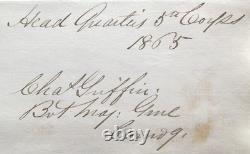 Head Quarters 5th Corps
1865
Chas Griffin:
Bvt Maj: Genl
Comdg.